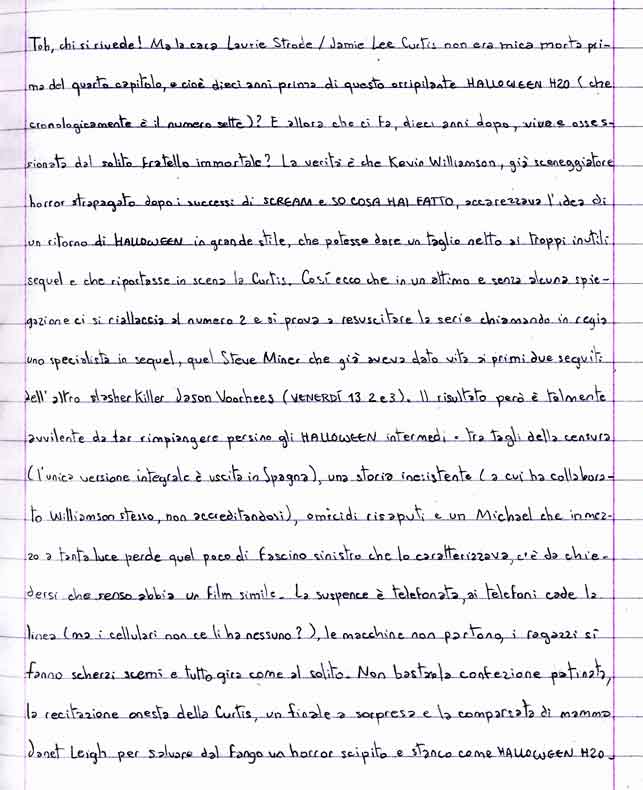 Toh, chi si rivede! Ma la cara Laurie Strode / Jamie Lee Curtis non era mica morta pri-
ma del quarto capitolo, e cioè dieci anni prima di questo orripilante HALLOWEEN H20 (che
cronologicamente è il numero sette)? E allora che ci fa, dieci anni dopo, viva e osses-
sionata dal solito fratello immortale? La verità è che Kevin Williamson, già sceneggiatore
horror strapagato dopo i successi di SCREAM e SO COSA HAI FATTO, accarezzava l'idea di
un ritorno di HALLOWEEN in grande stile, che potesse dare un taglio netto ai troppi inutili
sequel e che riportasse in scena la Curtis. Così ecco che in un attimo e senza alcuna spie-
gazione ci si riallaccia al numero 2 e si prova a resuscitare la serie chiamando in regia
uno specialista in sequel, quel Steve Miner che già aveva dato vita ai primi due seguiti
dell'altro slasher killer Jason Voorhees (VENERDÍ 13 2 e 3). Il risultato però è talmente
avvilente da far rimpiangere persino gli HALLOWEEN intermedi. Tra tagli della censura
(l'unica versione integrale è uscita in Spagna), una storia inesistente (a cui ha collabora-
to Williamson stesso, non accreditandosi), omicidi risaputi e un Michael che in mez-
zo a tanta luce perde quel poco di fascino sinistro che lo caratterizzava, c'è da chie-
dersi che senso abbia un film simile. La suspence è telefonata, ai telefoni cade la
linea (ma i cellulari non ce li ha nessuno?), le macchine non partono, i ragazzi si
fanno scherzi scemi e tutto gira come al solito. Non basta la confezione patinata,
la recitazione onesta della Curtis, un finale a sorpresa e la comparsata di mamma
Janet Leigh per salvare dal fango un horror scipito e stanco come HALLOWEEN H20.